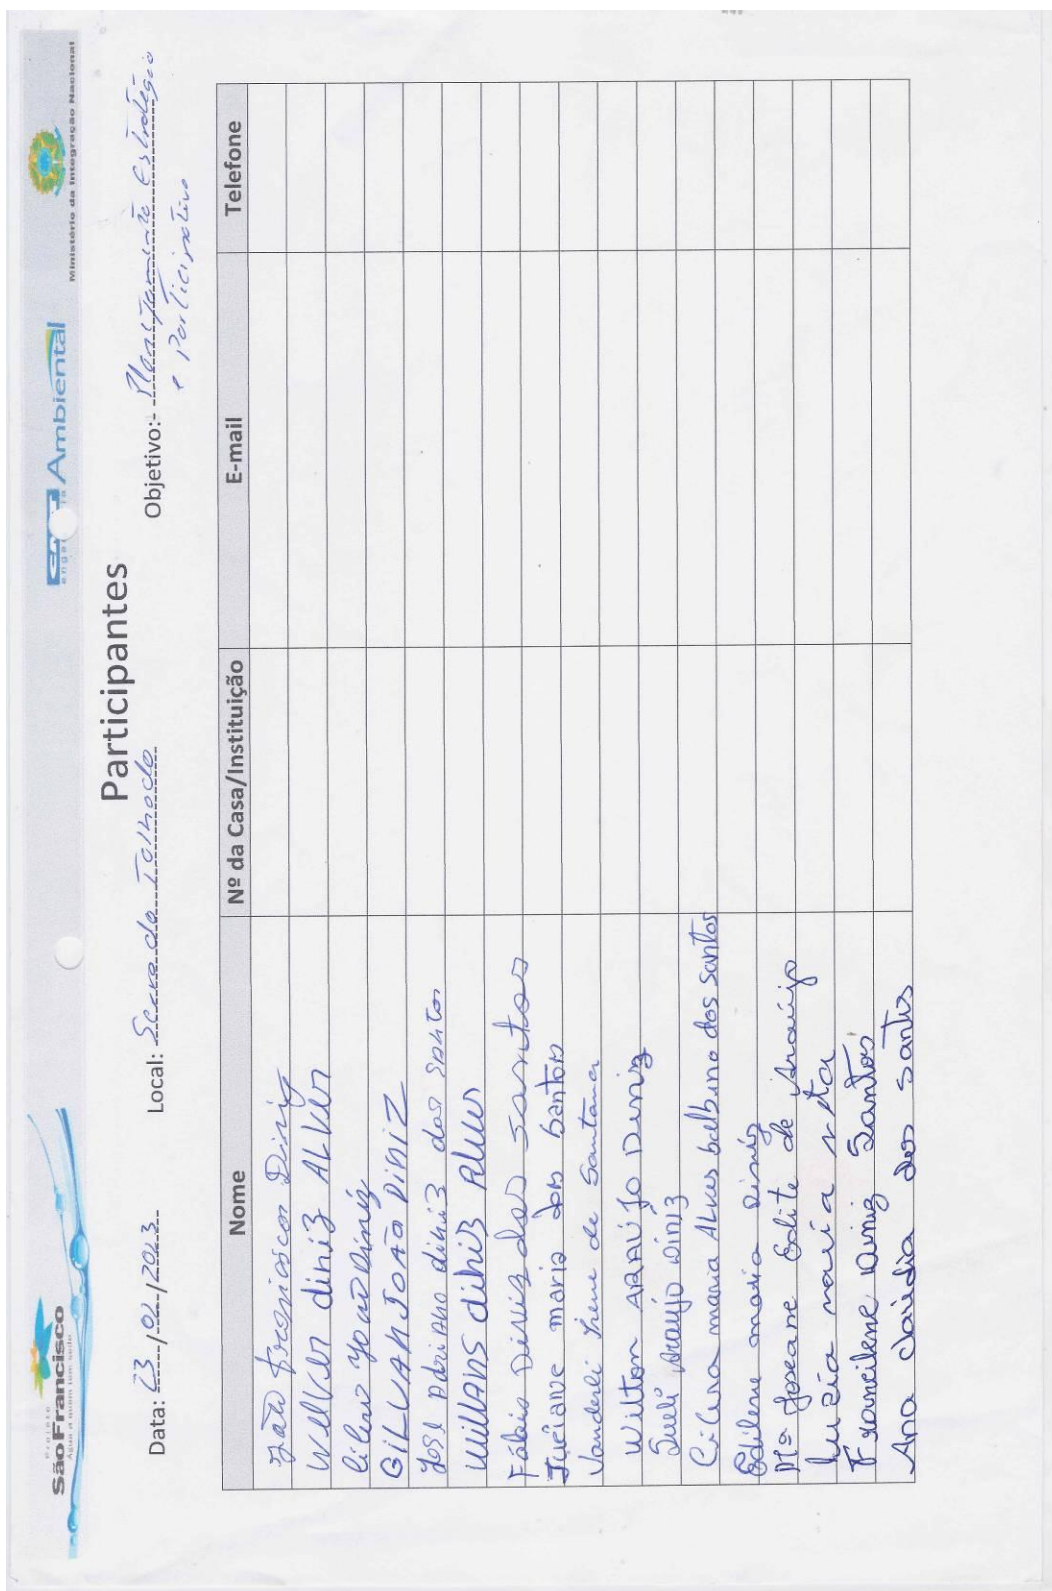 Projeto
São Francisco
Água a quem tem sede
Ambiental
Ministério da Integração Nacional
Participantes
Data: 23/02/2013 Local: Serra do Talhado Objetivo:- Planejamento Estratégico
e Participativo
Nome Nº da Casa/Instituição E-mail Telefone
João Diniz
diniz ALVES
João Diniz
GILVAN JOÃO DINIZ
José Adriano diniz dos santos
Willians diniz Alves
Fábio Diniz dos Santos
Juciane maria dos Santos
Vanderli Irene de Santana
Wilton ARAÚJO DINIZ
Sueli Araújo Diniz
Cicera maria Alves balbino dos Santos
Edilene maria Diniz
Mª Joseane Edite de Araújo
Luzia maria neta
Francilene Diniz Santos
Ana claúdia dos santos